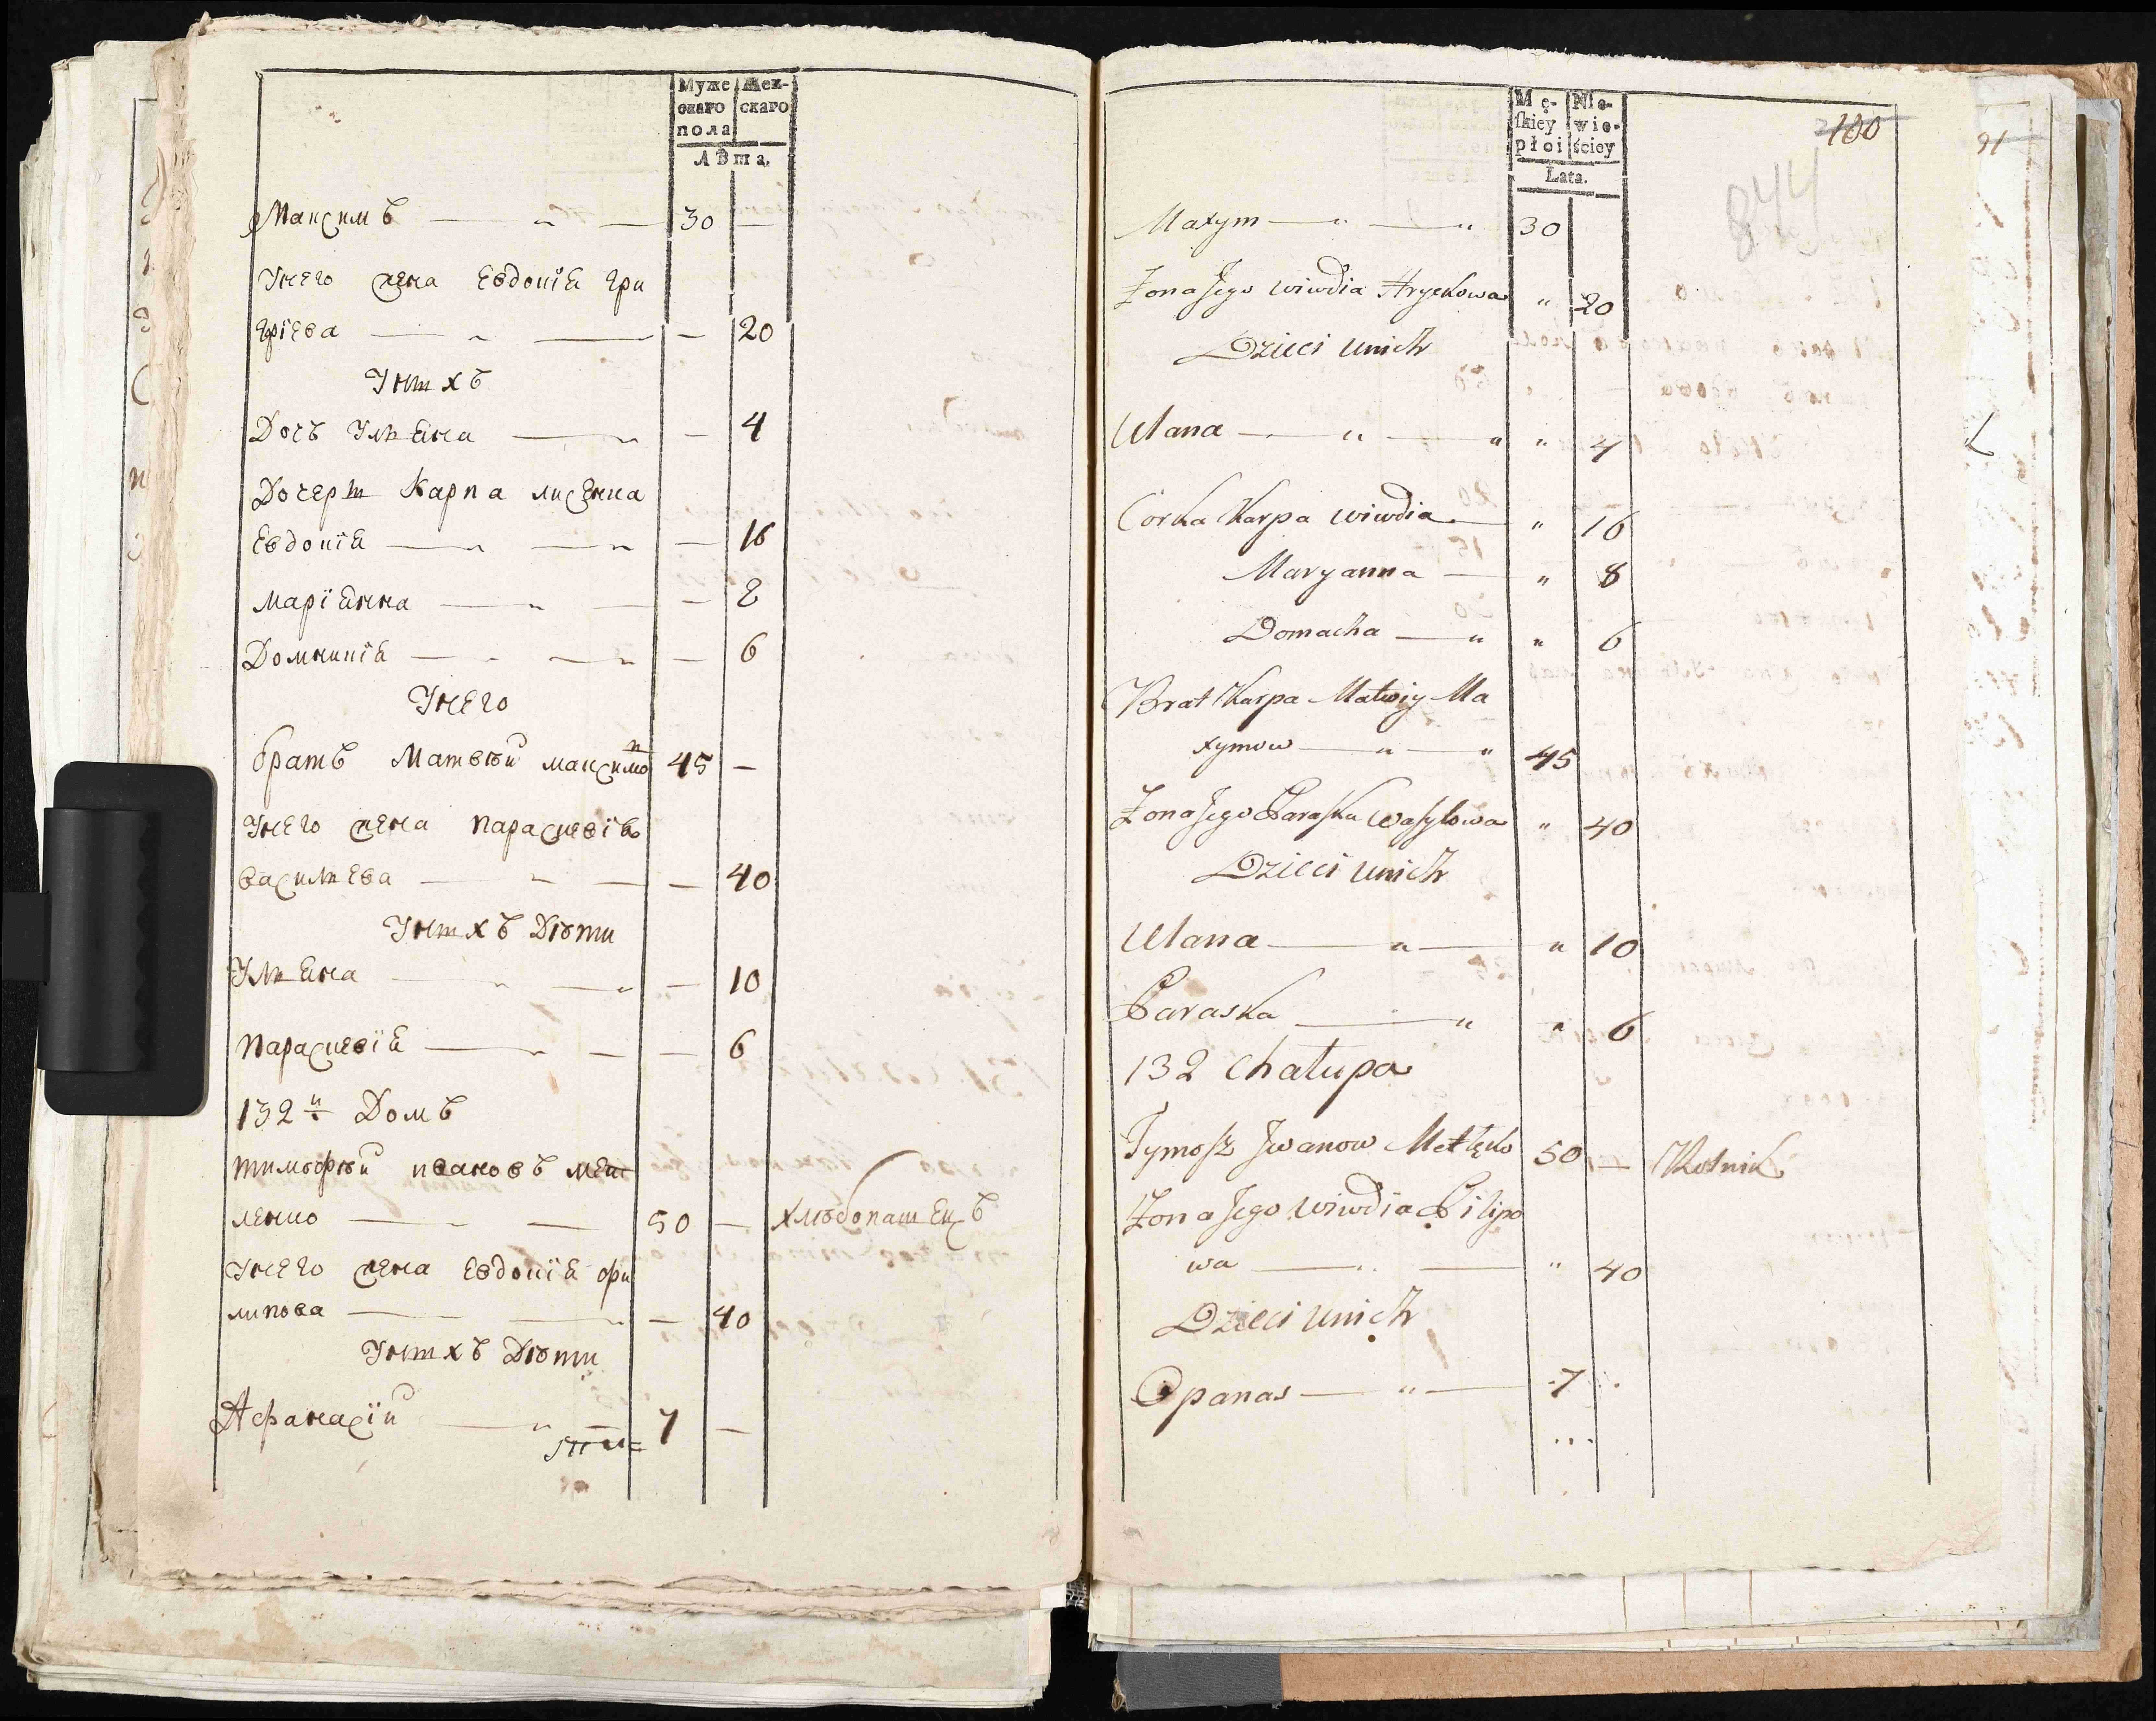 Муже Жен-
скаго скаго
пола
Лѣта.
Максимъ 30 —
Унего жена Евдокїя Гри
горїева — 20
Унихъ
Дочъ Ульяна — 4
Дочери Карпа Лисенка
Евдокїя — 16
Марїянна — 8
Домникїя — 6
Унего
братъ Матвѣй Максимо 45 —
Унего жена Параскевїя
Васильева — 40
Унихъ Дѣти
Ульяна — 10
Параскевїя — 6
132й Домъ
Тимофѣй Ивановъ Мет
ленко 50 — Хлѣбопашецъ
Унего жена Евдокїя Фи
липова — 40
Унихъ Дѣти
Афанасїй 7 —
Mę- Nie-
ſkiey wie-
płci ściey
Lata.
100
844
91
Maxym 30
Zona Jego Wiwdia Hryckowa " 20
Dzieci unich
Ulana " 4
Corka Karpa Wiwdia " 16
Maryanna " 8
Domacha " 6
Brat Karpa Matwiy Ma
xymow 45
Zona Jego Paraſka Waſylowa " 40
Dzieci unich
Ulana " 10
Paraska " 6
132 Chałupa
Tymoſz Jwanow Metłęko 50 — Rolnik
Zona Jego Wiwdia Pilipo
wa " 40
Dzieci unich
Opanas 7